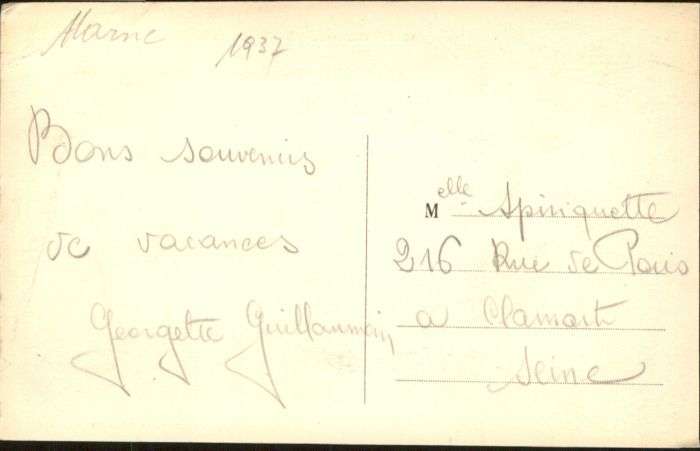 Marne 1937
Bons souvenirs
de vacances
Georgette Guillaumain
Melle Spiriquette
216 Rue de Paris
a Clamart
Seine